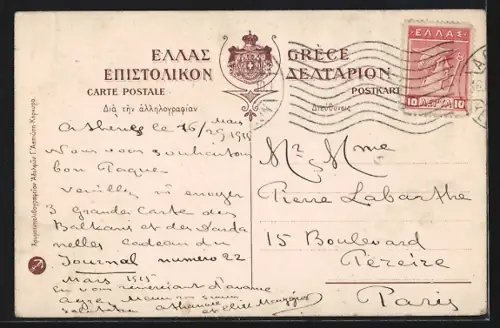 ΕΛΛΑΣ
ΕΠΙΣΤΟΛΙΚΟΝ
CARTE POSTALE
Διὰ τὴν ἀλληλογραφίαν
GRÈCE
ΔΕΛΤΑΡΙΟΝ
POSTKART
Διεύθυνσις
ΕΛΛΑΣ
10 ΛΕΠΤΑ 10
Athènes le 16/29 Mars 1915
Nous vous souhaitons
bon Paque
Veuillez m envoyer
3 Grandes Carte des
Balkans et des Darda
nelles cadeau du
Journal numero 22
Mars 1915
En vous remerciant d'avance
Mr & Mme
Pierre Labarthe
15 Boulevard
Péreire
Paris